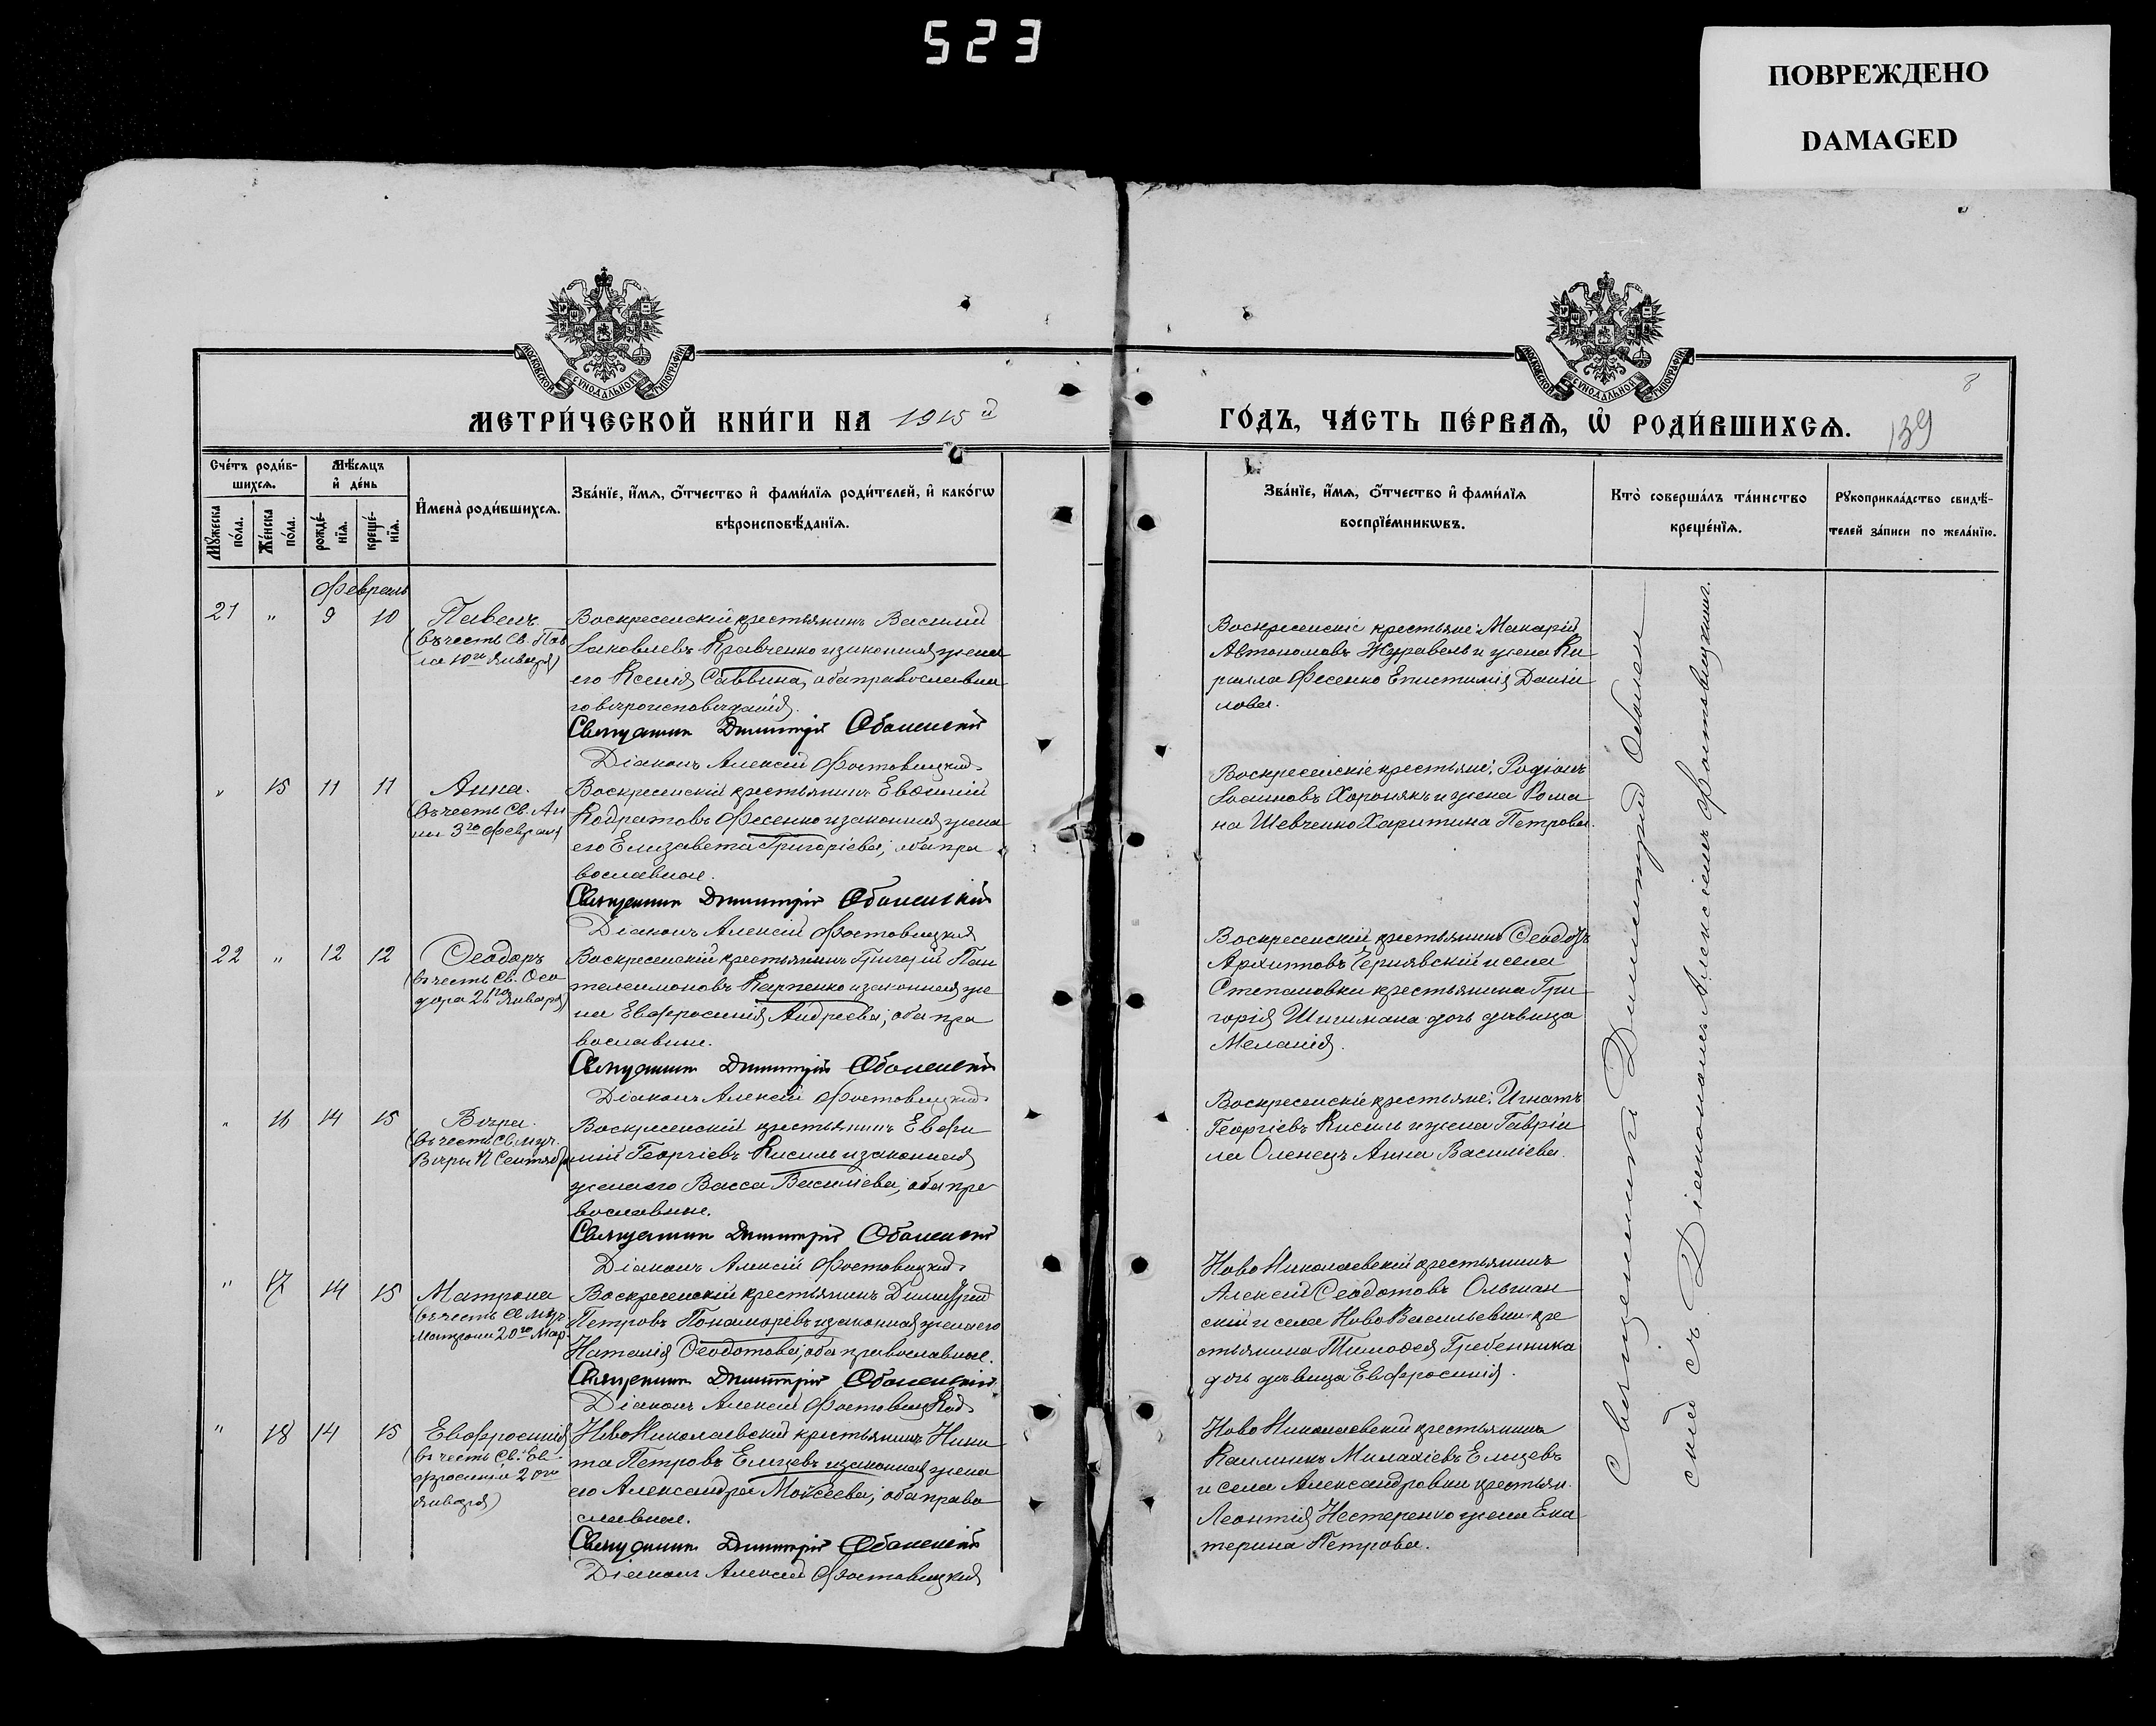 523
ПОВРЕЖДЕНО
DAMAGED
МОСКОВСКОЙ СУНОДАЛЬНОЙ ТИПОГРАФІИ
МОСКОВСКОЙ СУНОДАЛЬНОЙ ТИПОГРАФІИ
8
МЕТРИ́ЧЕСКОЙ КНИ́ГИ НА 1915й
ГО́ДЪ, ЧА́СТЬ ПЕ́РВАѦ, Ѡ҆ РОДИ́ВШИХСѦ.
139
Сче́тъ роди́в-
шихсѧ.
Мѣ́сѧцъ
и҆ де́нь
Мꙋ́жеска
по́ла.
Же́нска
по́ла.
рожде́-
нїѧ.
креще́-
нїѧ.
И҆мена̀ роди́вшихсѧ.
Зва́нїе, и҆́мѧ, ѻ҆́тчество и҆ фами́лїѧ роди́телей, и҆ како́гѡ
вѣроисповѣ́данїѧ.
Зва́нїе, и҆́мѧ, ѻ҆́тчество и҆ фами́лїѧ
воспрїе́мникѡвъ.
Кто̀ соверша́лъ та́инство
креще́нїѧ.
Рꙋкоприкла́дство свидѣ́-
телей за́писи по жела́нїю.
Февраль
21 " 9 10
Павелъ.
(въ честь Св. Пав
ла 10го Января)
Воскресенскій крестьянинъ Василій
Іаковлевъ Кравченко и законная жена
его Ксенія Саввина, оба православна
го вѣроисповѣданія.
Священник Димитрій Оболенскій
Діаконъ Алексій Фостовицкій
Воскресенскіе крестьяне: Макарій
Автономовъ Журавель и жена Ки
рилла Фесенко Епистимія Дании
лова.
" 15 11 11
Анна.
(въ честь Св. Ан
ны 3го Февраля)
Воскресенскій крестьянинъ Евѳимій
Кодратовъ Фесенко и законная жена
его Елизавета Григоріева, оба пра
вославные.
Священник Димитрій Оболенскій
Діаконъ Алексій Фостовицкій
Воскресенскіе крестьяне: Родіонъ
Іоанновъ Хоронякъ и жена Рома
на Шевченко Харитина Петрова.
22 " 12 12
Ѳеодоръ
(въ честь Св. Ѳео
дора 26го Января)
Воскресенскій крестьянинъ Григорій Пан
телеимоновъ Карпенко и законная же
на Евфросинія Андреева, оба пра
вославные.
Священник Димитрій Оболенскій
Діаконъ Алексій Фостовицкій
Воскресенскій крестьянинъ Ѳеодоръ
Архиповъ Чернявскій и села
Степановки крестьянина Гри
горія Шишмана дочь дѣвица
Меланія.
" 16 14 15
Вѣра.
(въ честь Св. муч.
Вѣры 17 Сентября
Воскресенскій крестьянинъ Евфи
мій Георгіевъ Кисиль и законная
жена его Васса Василіева, оба пра
вославные.
Священник Димитрій Оболенскій
Діаконъ Алексій Фостовицкій
Воскресенскіе крестьяне: Игнатъ
Георгіевъ Кисиль и жена Гавріи
ла Оленецъ Анна Василіева.
" 17 14 15
Матрона
(въ честь Св. муч.
Матроны 20го Мар.
Воскресенскій крестьянинъ Димитрій
Петровъ Пономаревъ и законная жена его
Наталія Ѳеодотова, оба православные.
Священник Димитрій Оболенскій
Діаконъ Алексій Фостовицкій
НовоНиколаевскій крестьянинъ
Алексій Ѳеодотовъ Ольшан
скій и села НовоВасильевки кре
стьянина Тимоѳея Гребенника
дочь дѣвица Евфросинія.
" 18 14 15
Евфросинія
(въ честь Св. Ев
фросиніи 20го
Января)
НовоНиколаевскій крестьянинъ Ники
та Петровъ Елисѣевъ и законная жена
его Александра Моѵсеева, оба право
славные.
Священник Димитрій Оболенскій
Діаконъ Алексій Фостовицкій
НовоНиколаевскій крестьянинъ
Калиникъ Малахіевъ Елисѣевъ
и села Александровки крестьян.
Леонтія Нестеренко жена Ека
терина Петрова.
Священникъ Димитрій Оболен
скій съ Діакономъ Алексіемъ Фостовицкимъ.